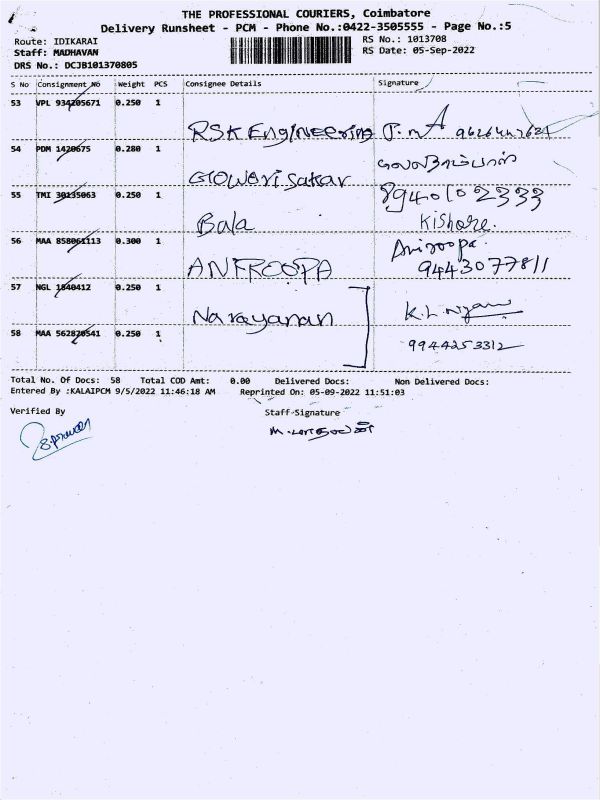 THE PROFESSIONAL COURIERS, Coimbatore
Delivery Runsheet - PCM - Phone No.:0422-3505555 - Page No.:5
Route: IDIKARAI
RS No.: 1013708
Staff: MADHAVAN
RS Date: 05-Sep-2022
DRS No.: DCJB101370805
S No Consignment No Weight PCS Consignee Details Signature
53 VPL 934205671 0.250 1
RSK Engineering
54 PDM 1420675 0.280 1
Gowri sakar
55 TMI 30135063 0.250 1 8940102333
Bala Kishore.
56 MAA 858061113 0.300 1 Aniroopa.
ANIROOPA 9443077811
57 NGL 1840412 0.250 1
Narayanan
58 MAA 562820541 0.250 1 9944253312
Total No. Of Docs: 58 Total COD Amt: 0.00 Delivered Docs: Non Delivered Docs:
Entered By :KALAIPCM 9/5/2022 11:46:18 AM Reprinted On: 05-09-2022 11:51:03
Verified By Staff-Signature